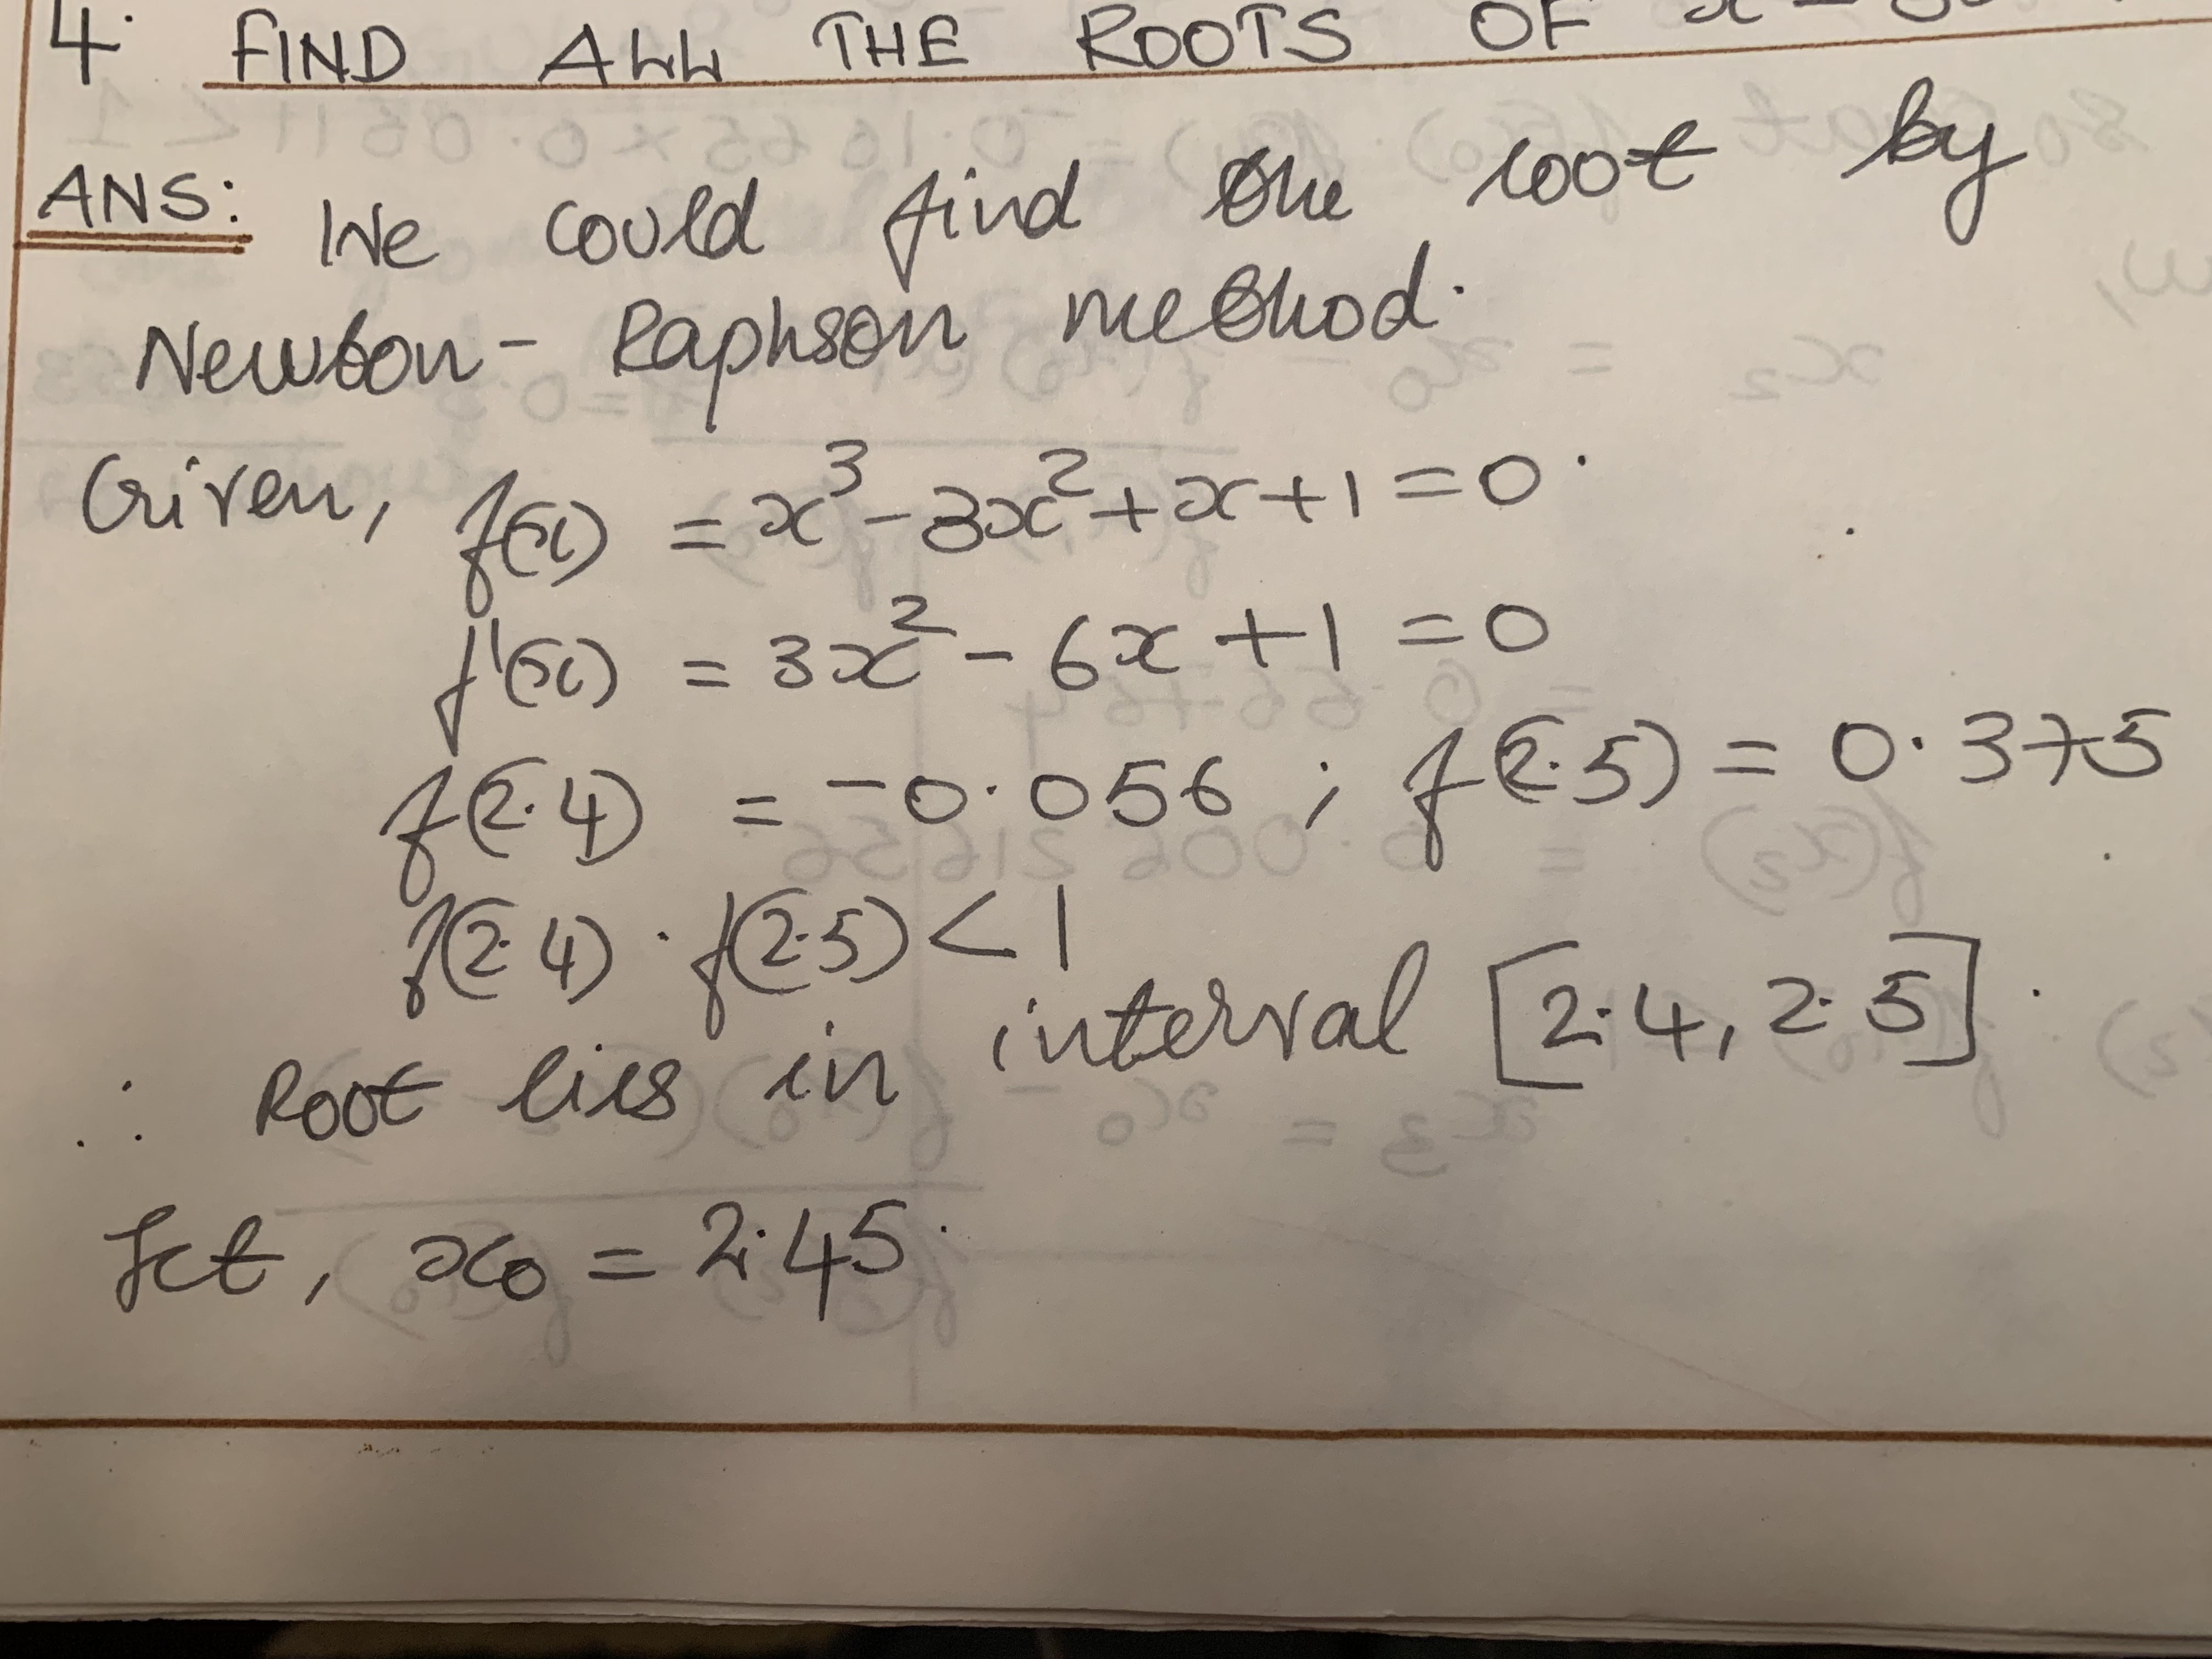 4. FIND ALL THE ROOTS OF
ANS: We could find the root by
Newton-Raphson method.
Given, f(x) = x³ - 3x² + x + 1 = 0.
f'(x) = 3x² - 6x + 1 = 0
f(2.4) = -0.056 ; f(2.5) = 0.375
f(2.4) . f(2.5) < 1
∴ Root lies in interval [2.4, 2.5].
Let, x₀ = 2.45.